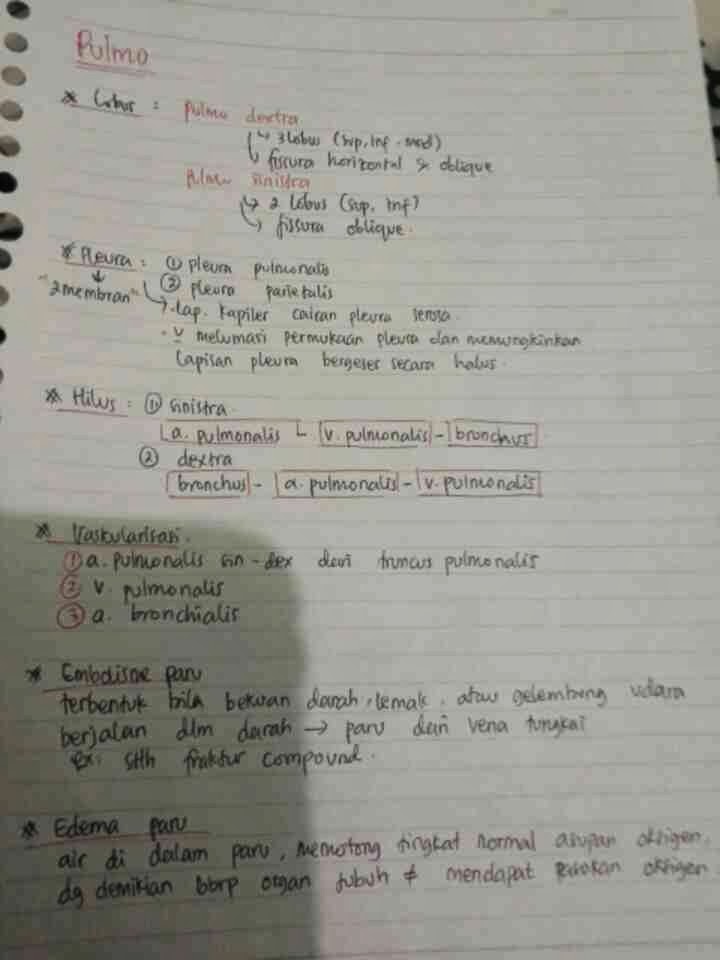 Pulmo
* Lobus : pulmo dextra
↳ 3 lobus (sup, inf, med)
↳ fissura horizontal & oblique
Pulmo sinistra
↳ 2 lobus (sup, inf)
↳ fissura oblique.
* Pleura : ① pleura pulmonalis
"2 membran" ② pleura parietalis
↳ • Lap. kapiler cairan pleura serosa.
• U melumasi permukaan pleura dan memungkinkan
Lapisan pleura bergeser secara halus.
* Hilus : ① sinistra.
a. pulmonalis - v. pulmonalis - bronchus
② dextra
bronchus - a. pulmonalis - v. pulmonalis
* Vaskularisasi.
① a. pulmonalis sin - dex dari truncus pulmonalis
② v. pulmonalis
③ a. bronchialis
* Embolisme paru
terbentuk bila bekuan darah, lemak, atau gelembung udara
berjalan dlm darah → paru dari vena tungkai
Ex: stlh fraktur compound.
* Edema paru
air di dalam paru, memotong tingkat normal asupan oksigen.
dg demikian bbrp organ tubuh ≠ mendapat pasokan oksigen.